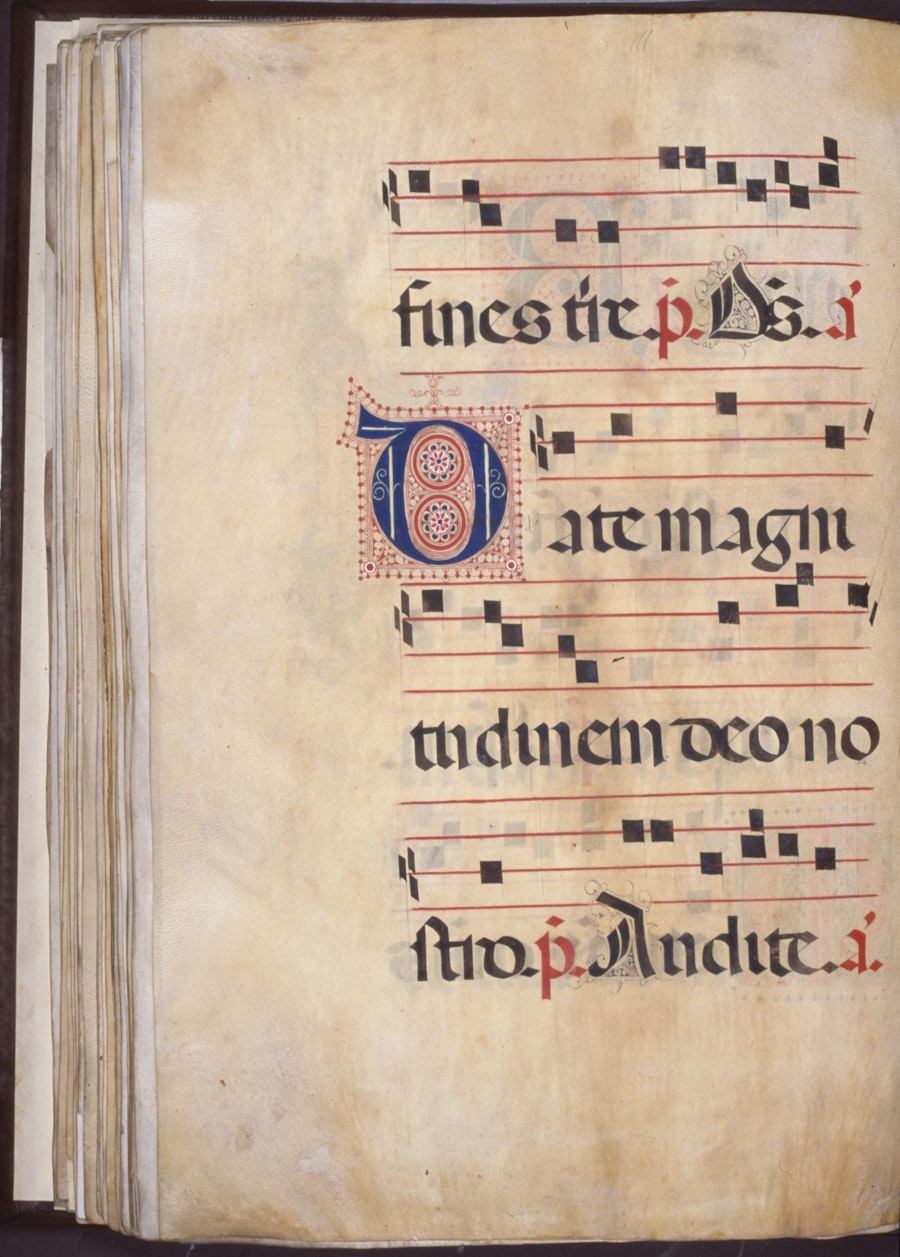 fines t̄re. p̄. Ds̄. a̍
Date magni
tudinem deo no
stro. p̄. Audite. a̍.